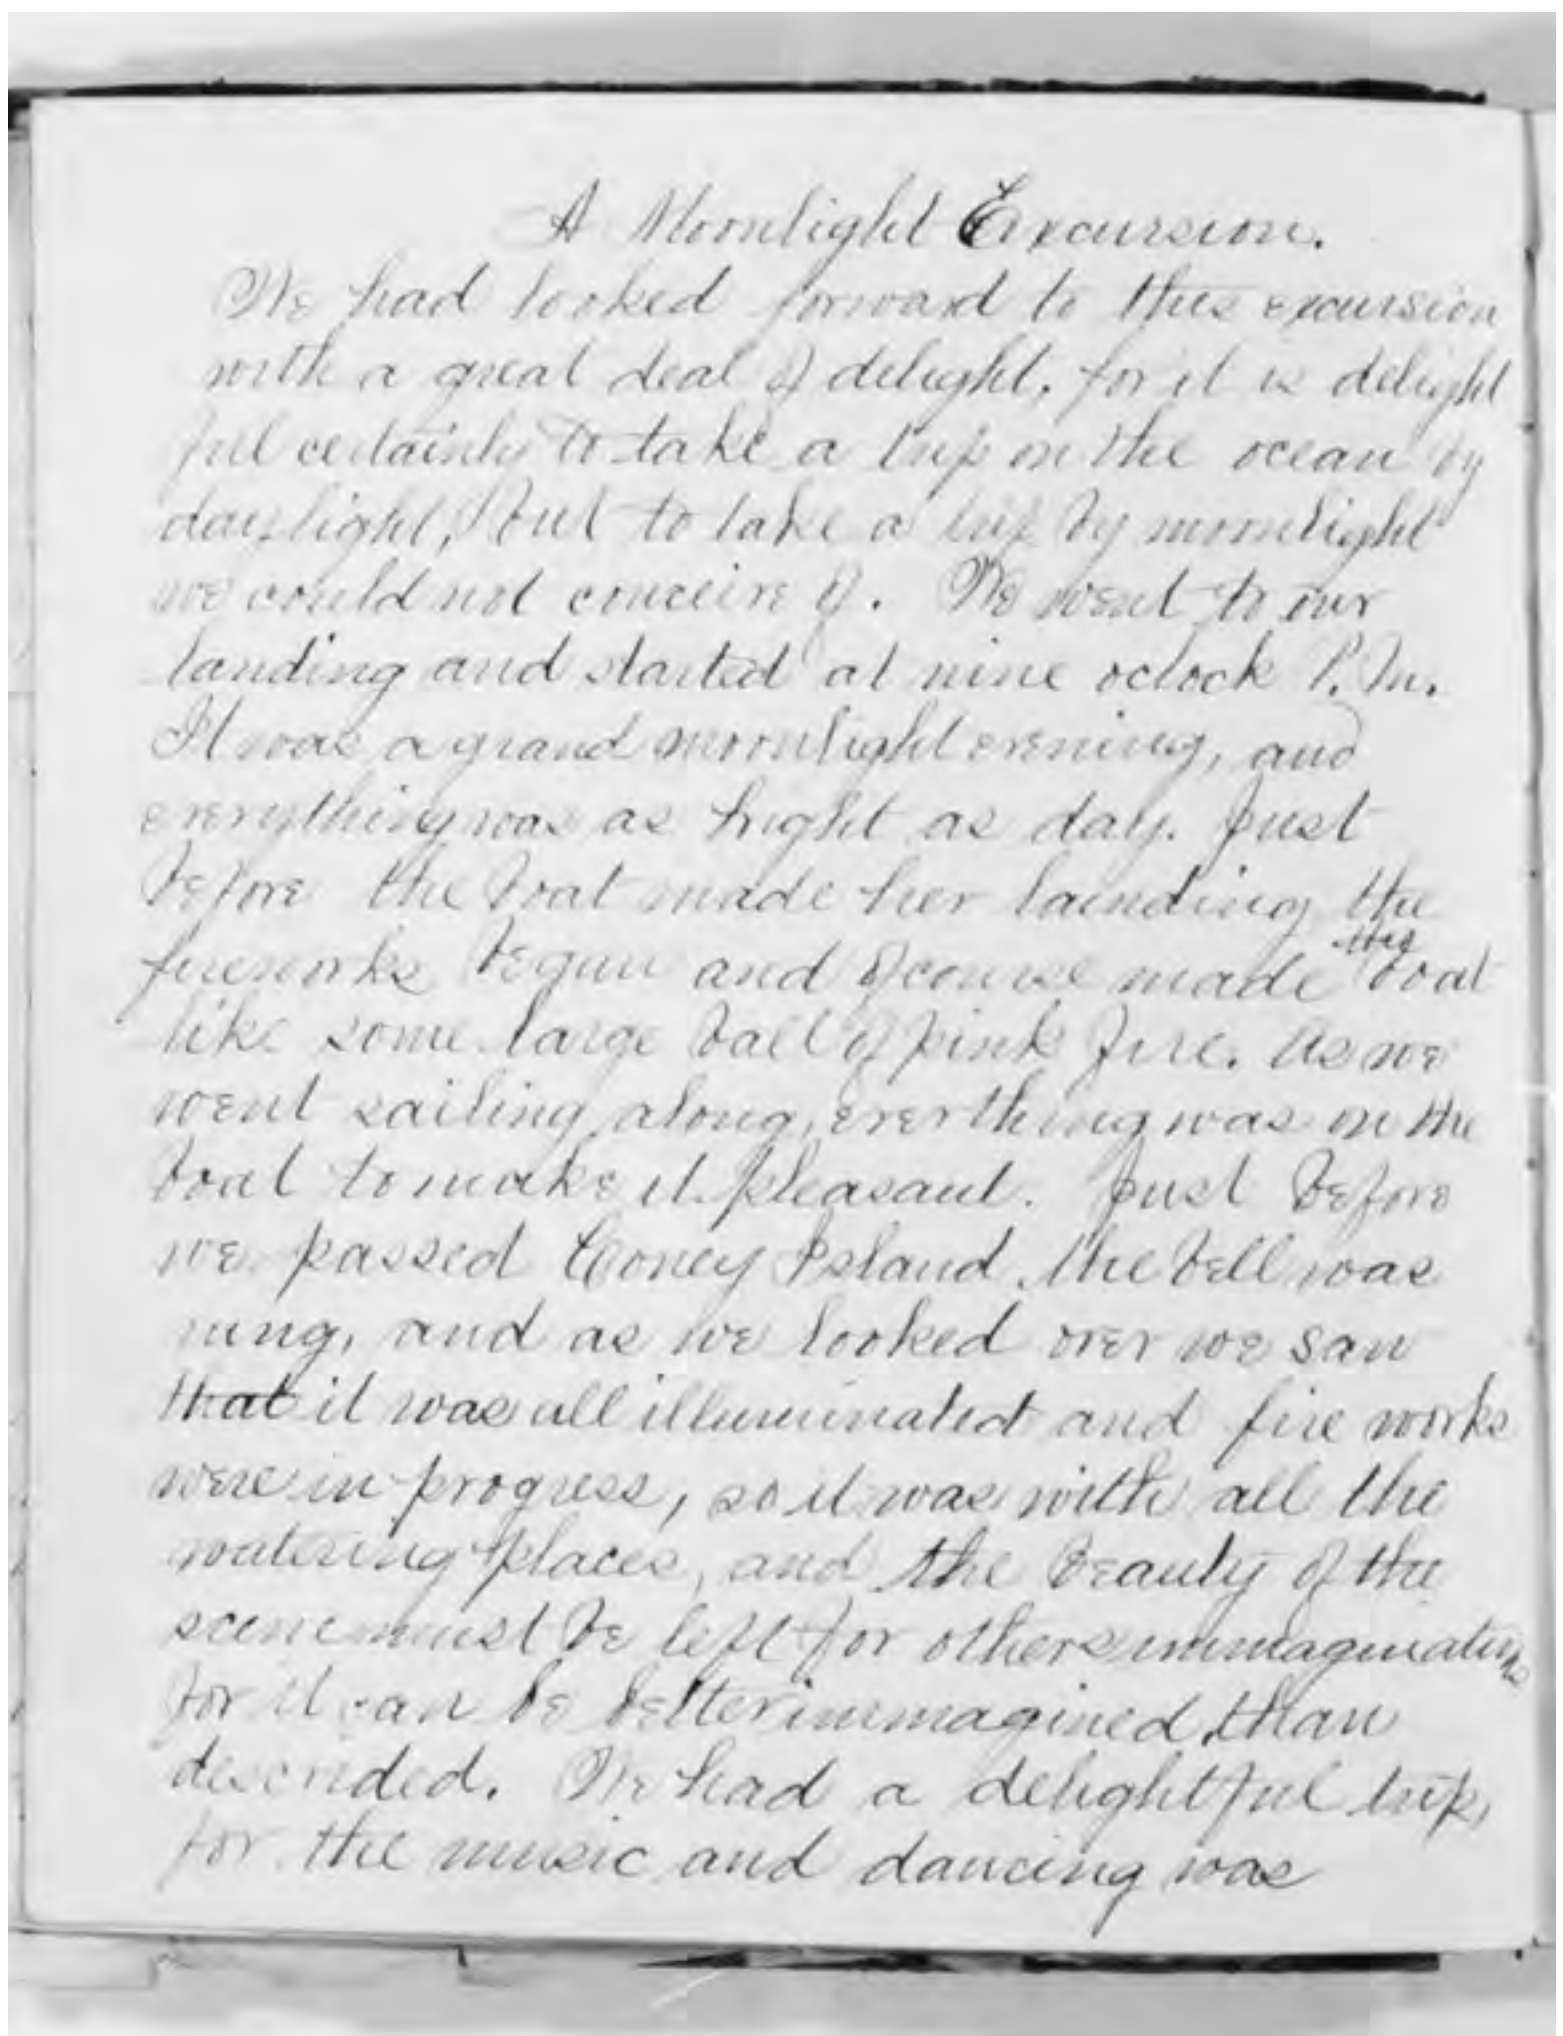 A Moonlight Excursion.
We had looked forward to this excursion
with a great deal of delight, for it is delight
ful certainly to take a trip on the ocean by
daylight, but to take a trip by moonlight
we could not conceive of. We went to our
landing and started at nine oclock P.M.
It was a grand moonlight evening, and
everything was as bright as day. Just
before the boat made her lainding the
fireworks begun and of course made the boat
like some large ball of pink fire. As we
went sailing along, everthing was on the
boat to make it pleasant. Just before
we passed Coney Island, the bell was
rung, and as we looked over we saw
that it was all illuminated and fire works
were in progress, so it was with all the
watering places, and the beauty of the
scene must be left for others immaginations
for it can be better immagined than
described. We had a delightful trip,
for the music and dancing was